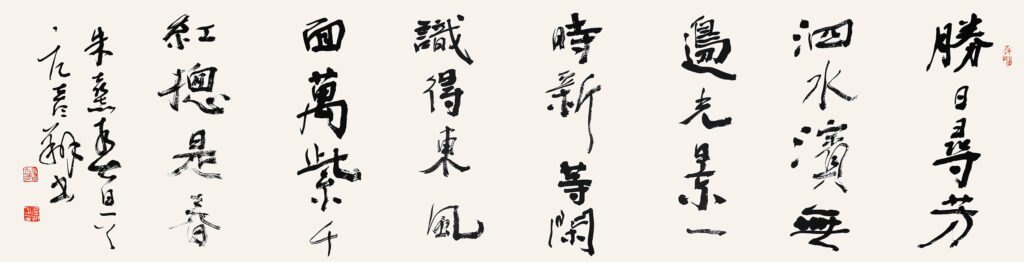 勝日尋芳
泗水濱無
邊光景一
時新等閑
識得東風
面萬紫千
紅摠是春
朱熹春日一首
書